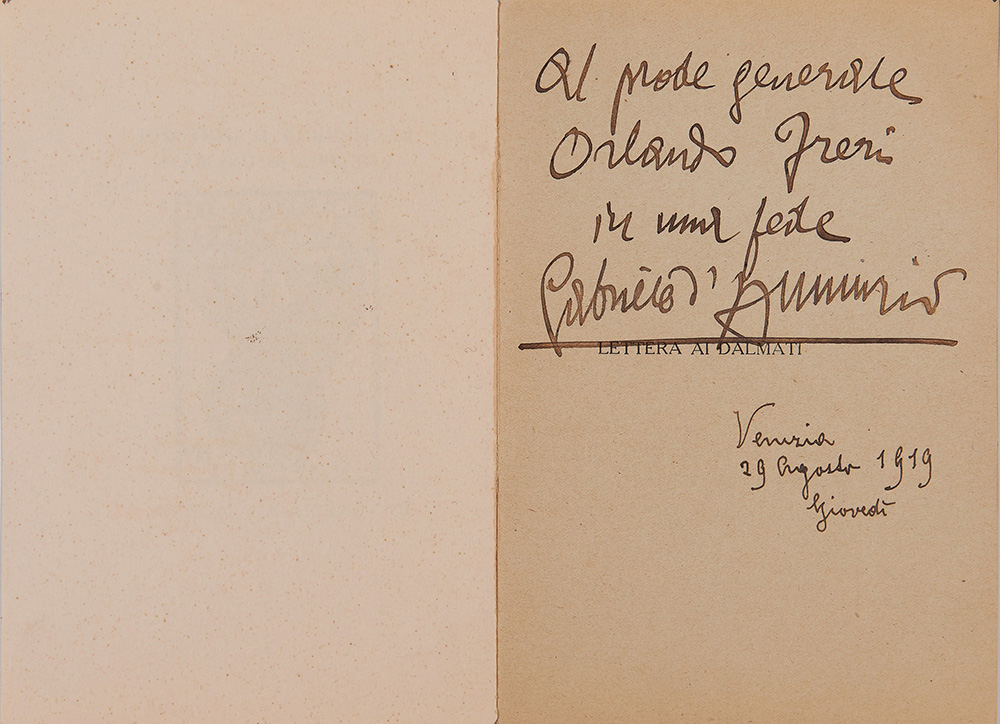 Al prode generale
Orlando Freri
in una fede
Gabriele d'Annunzio
LETTERA AI DALMATI
Venezia
29 Agosto 1919
Giovedì